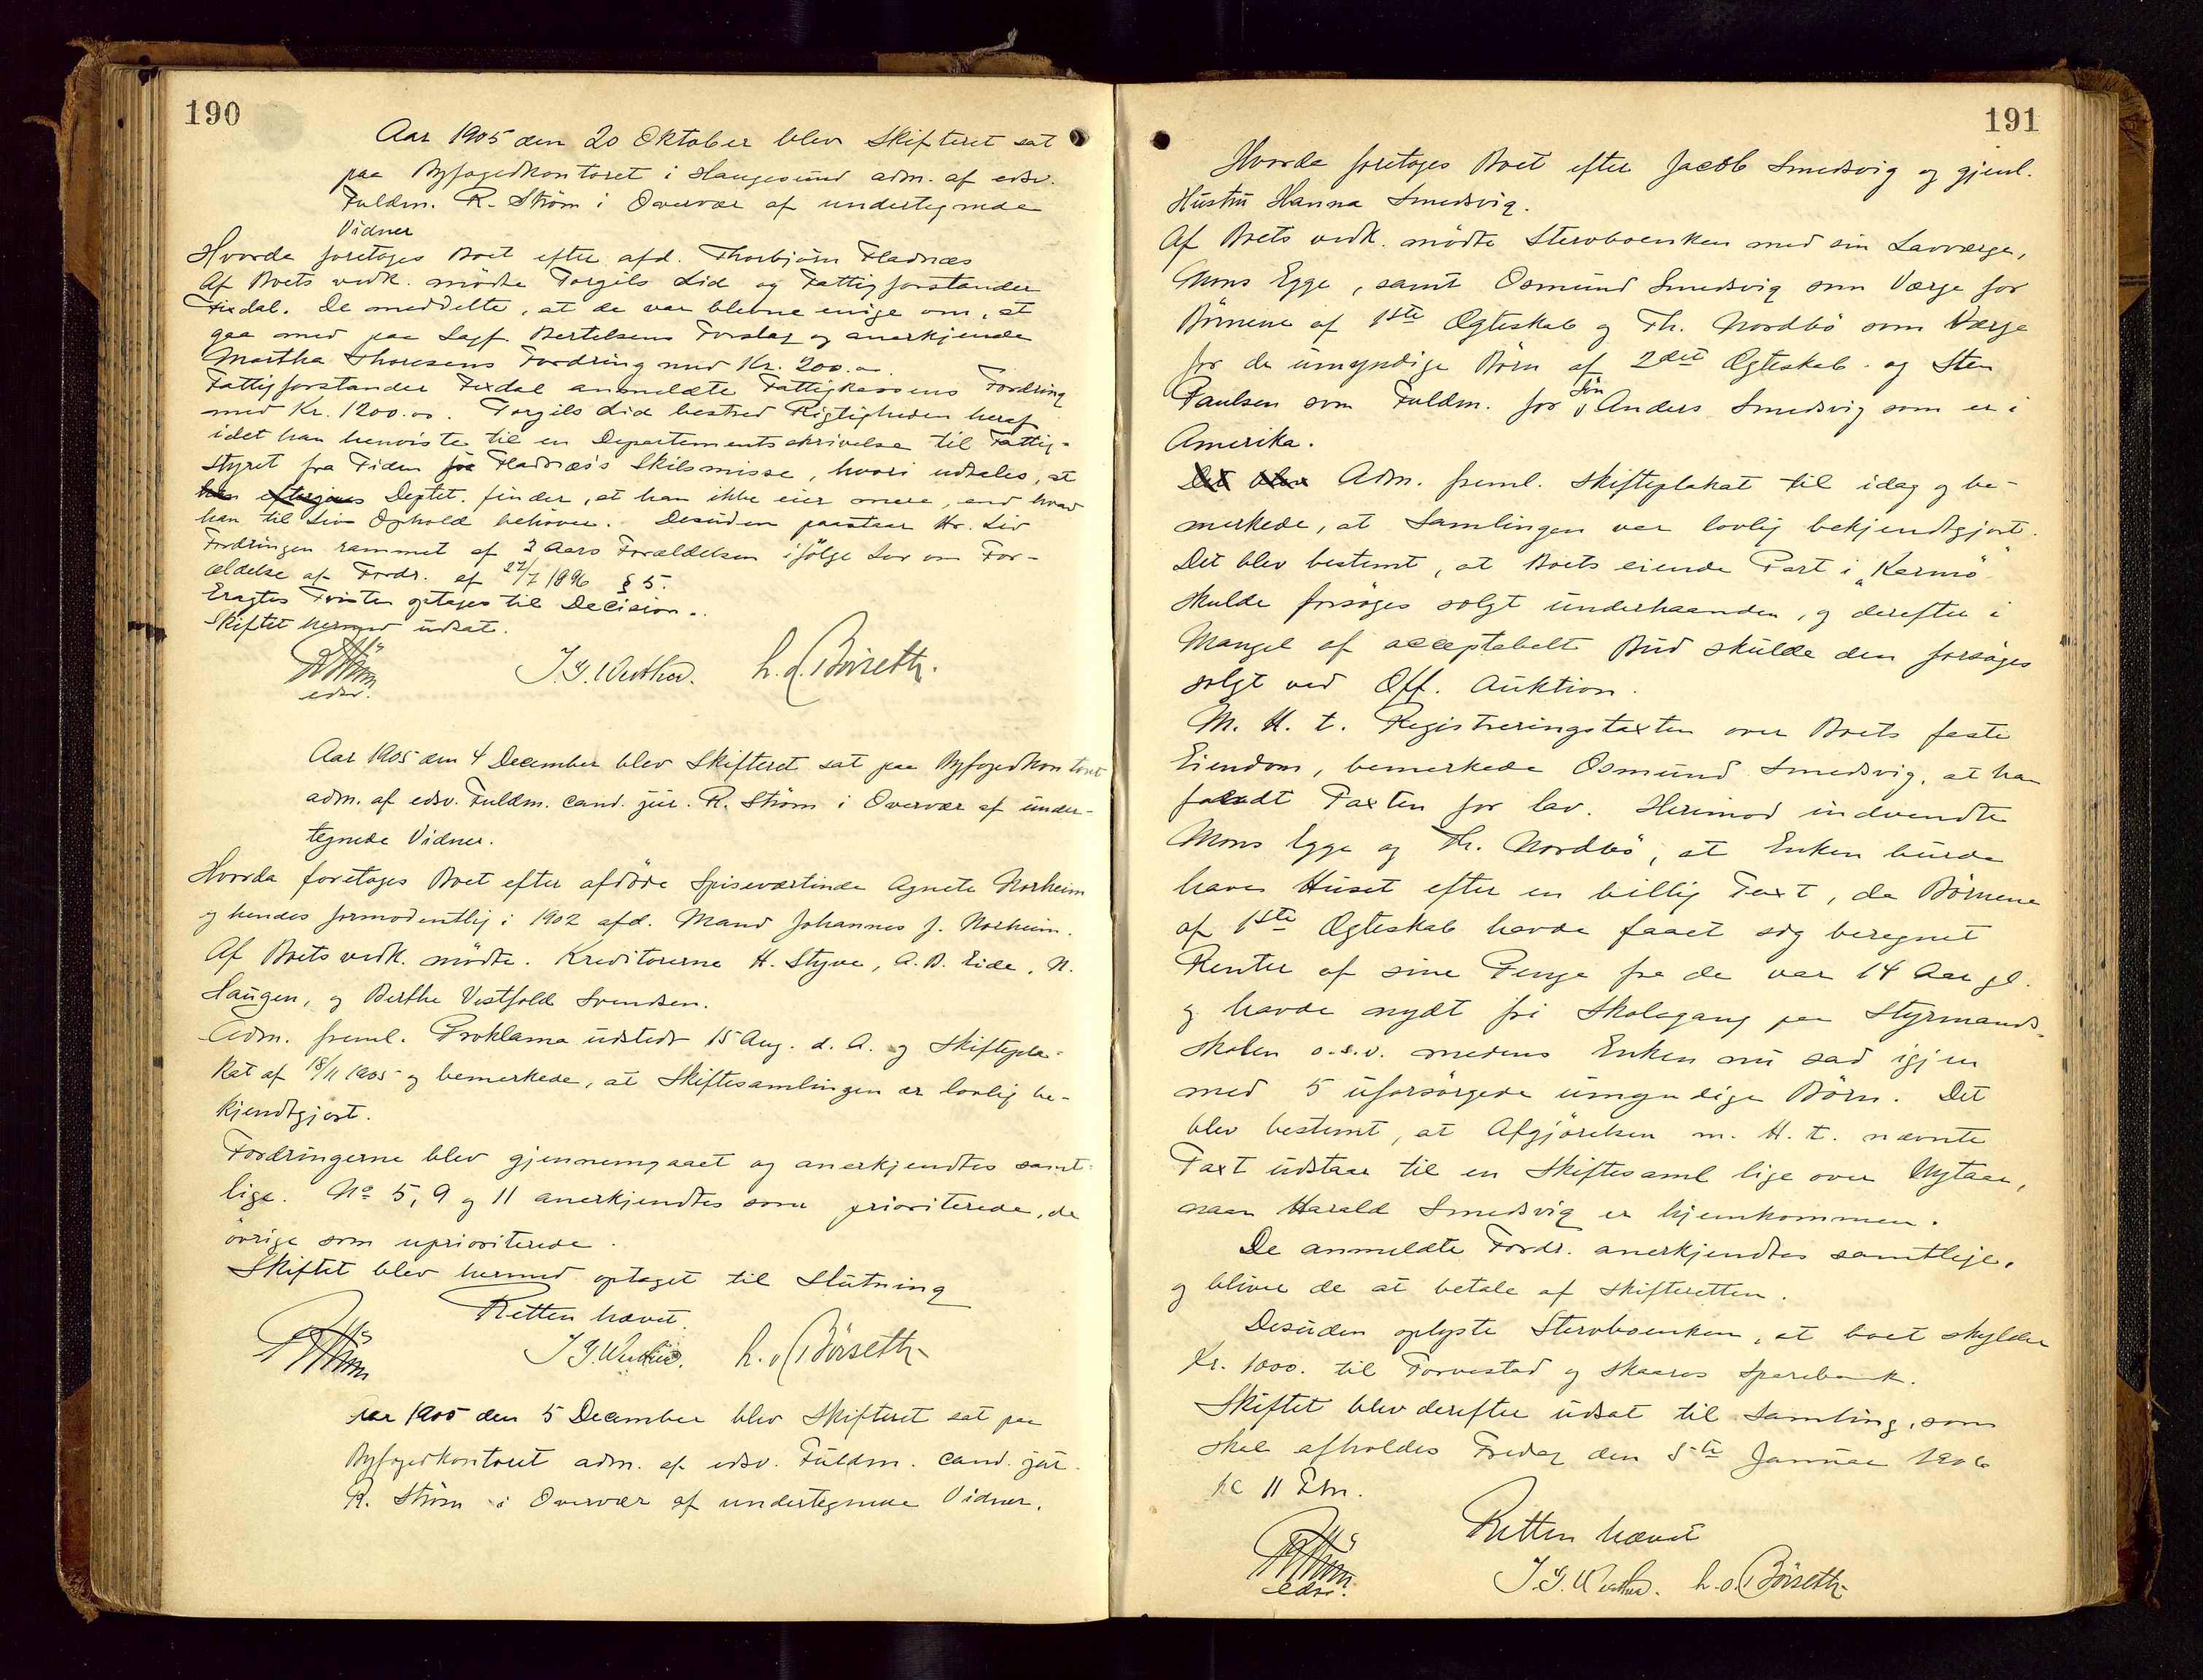 190
Aar 1905 den 20 Oktober blev Skifteret sat
paa Byfogedkontoret i Haugesund adm. af edsv.
Fuldm. R. Strøm i Overvær af undertegnede
Vidner
Hvorda foretoges Boet efter afd. Thorbjörn Fladnæs
Af Boets vedk. mødte Torgils Lid og Fattigforstander
Fixdal. De meddelte, at de var blevne enige om, at
gaa med paa Sagf. Bertelsens Forslag og anerkjende
Martha Thoresens Fordring med Kr. 200.00.
Fattigforstander Fixdal anmeldte Fattigkassens Fordring
med Kr. 1200.00. Torgils Lid bestred Rigtigheden heraf
idet han henviste til en Departementsskrivelse til Fattig-
styret fra Tiden for Fladnæs's Skilsmisse, hvori udtales, at
Deptet. finder, at han ikke eier mere, end hvad
han til Livs Ophold behöver. Desuden paastaar Hr. Lid
Fordringen rammet af 3 Aars Forældelsen ifölge Lov om For-
ældelse af Fordr. af 27/7 1896 § 5.
Eragtes Tvisten optages til Decision.
Skiftet hermed udsat.
R Strøm
edsv.
J. G. Wuthei. h. d. Börseth.
Aar 1905 den 4 December blev Skifteret sat paa Byfogedkontoret
adm. af edsv. Fuldm. cand. jur. R. Strøm i Overvær af under-
tegnede Vidner.
Hvorda foretoges Boet efter afdöde Spiseværtinde Agnete Norheim
og hendes formodentlig i 1902 afd. Mand Johannes J. Norheim.
Af Boets vedk. mødte. Kreditorerne H. Styve, A. B. Eide, N.
Haugen, og Berthe Vestfold Svendsen.
Adm. freml. Proklama udstedt 15 Aug. d. A. og Skiftepla-
kat af 18/11 1905 og bemerkede, at Skiftesamlingen er lovlig be-
kjendtgjort.
Fordringerne blev gjennemgaaet og anerkjendtes samt-
lige. No 5, 9 og 11 anerkjendtes som prioriterede, de
övrige som uprioriterede.
Skiftet blev hermed optaget til Slutning
Retten hævet.
R Strøm
J. G. Wuthei. h. d. Börseth
Aar 1905 den 5 December blev Skifteret sat paa
Byfogedkontoret adm. af edsv. Fuldm. cand. jur.
R. Strøm i Overvær af undertegnede Vidner.
191
Hvorda foretoges Boet efter Jacob Smedsvig og gjenl.
Hustru Hanna Smedsvig.
Af Boets vedk. mödte Stervboenken med sin Lavværge,
Mons Egge, samt Osmund Smedsvig som Værge for
Börnene af 1ste Ægteskab og Th. Nordbö som Værge
for de umyndige Börn af 2det Ægteskab og Sten
Paulsen som Fuldm. for Sön Anders Smedsvig som er i
Amerika.
Det blev Adm. freml. Skifteplakat til idag og be-
merkede, at Samlingen var lovlig bekjendtgjort.
Det blev bestemt, at Boets eiende Part i „Karmö"
skulde forsöges solgt underhaanden, og derefter i
Mangel af acceptabelt Bud skulde den forsöges
solgt ved Off. Auktion.
M. H. t. Registreringstaxten over Boets faste
Eiendom, bemerkede Osmund Smedsvig, at han
fandt Taxten for lav. Herimod indvendte
Mons Egge og Th. Nordbö, at Enken burde
have Huset efter en billig Taxt, da Börnene
af 1ste Ægteskab havde faaet sig beregnet
Renter af sine Penge fra de var 14 Aar gl.
og havde nydt fri Skolegang paa Styrmands-
skolen o.s.v. medens Enken nu sad igjen
med 5 uforsörgede umyndige Börn. Det
blev bestemt, at Afgjörelsen m. H. t. nævnte
Taxt udstaar til en Skiftesaml lige over Nytaar,
naar Harald Smedsvig er hjemkommen.
De anmeldte Fordr. anerkjendtes samtlige,
og bliver de at betale af Skifteretten.
Desuden oplyste Stervboenken, at boet skylder
Kr. 1000. til Torvestad og Skaares Sparebank.
Skiftet blev derefter udsat til Samling, som
skal afholdes Fredag den 5te Januar 1906
kl 11 Fm.
Retten hævet
R Strøm
edsv.
J. G. Wuthei. h. d. Börseth